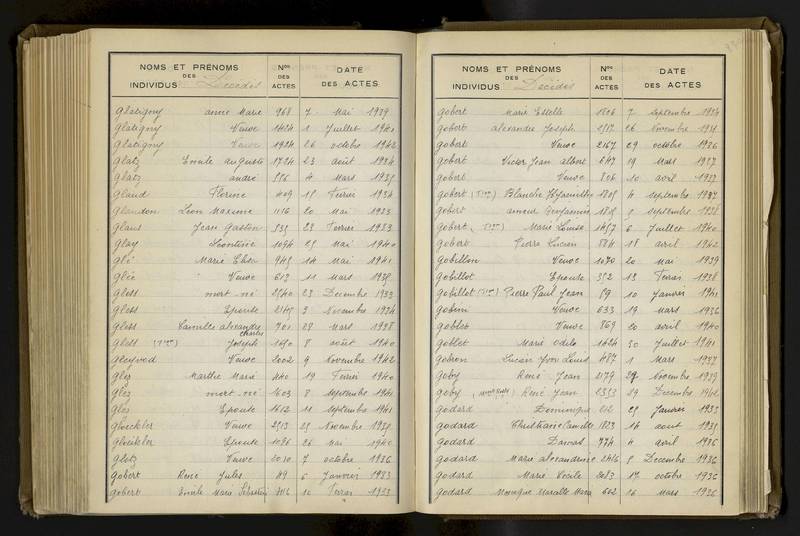 NOMS ET PRÉNOMS DES INDIVIDUS Décédés Nos DES ACTES DATE DES ACTES
Glatigny Année Marie 968 7 Mai 1939
Glatigny Veuve 1424 1 Juillet 1940
Glatigny Veuve 1924 26 octobre 1942
Glatz Emile auguste 1724 23 août 1934
Glatz andré 556 4 Mars 1935
Glaud Florine 409 15 Février 1934
Glaudon Léon Maxime 1116 20 Mai 1933
Glaus Jean Gaston 535 23 Février 1933
Glay Léontine 1094 25 Mai 1940
Glé Marie 945 14 Mai 1941
Glée Veuve 613 11 Mars 1935
Gless mort-né 2540 23 Décembre 1933
Gless Epouse 2145 3 Novembre 1934
Gless Camille alexandre Charles 701 28 Mars 1938
Gless Joseph 1690 8 août 1940
Veuve 2002 9 Novembre 1942
Glez Marthe Marie 440 19 Février 1940
Glez mort-né 1603 8 septembre 1941
Glez Epouse 1612 11 septembre 1941
Gloeckler Veuve 2513 25 Novembre 1935
Gloeckler Epouse 1086 26 Mai 1940
Glotz Veuve 2010 7 octobre 1936
Gobert René Jules 49 6 Janvier 1933
Gobert Emile Marie Sébastien 10 Février 1933
NOMS ET PRÉNOMS DES INDIVIDUS Décédés Nos DES ACTES DATE DES ACTES
Gobert Marie Estelle 1806 7 septembre 1934
Gobert alexandre Joseph 26 Novembre 1935
Gobert Veuve 2167 29 octobre 1936
Gobert Victor Jean albert 647 19 Mars 1937
Gobert Veuve 806 10 avril 1937
Gobert Blanche Hyacinthe 1805 4 septembre 1937
Gobert Benjamin septembre 1938
Gobert Marie Louise 1457 6 Juillet 1940
Gobert Pierre Lucien 884 18 avril 1942
Gobillon Veuve 1070 20 Mai 1939
Gobillot Epouse 352 13 Février 1938
Gobillot Pierre Paul Jean 89 10 Janvier 1941
Gobin Veuve 633 19 Mars 1936
Goblet Veuve 869 20 avril 1940
Goblet Marie Odile 1424 30 Juillet 1941
Gobron Lucien Yvon Louis 487 1 Mars 1937
Goby René Jean 2179 29 Novembre 1939
Goby René Jean 2353 29 Décembre 1942
Godard Dominique 212 25 Janvier 1933
Godard Christiane Camille 1823 14 août 1935
Godard 774 4 avril 1936
Godard Marie alexandrine 2416 8 Décembre 1936
Godard Marie Cécile 2083 17 octobre 1936
Godard Monique Marcelle Marie 602 16 Mars 1936